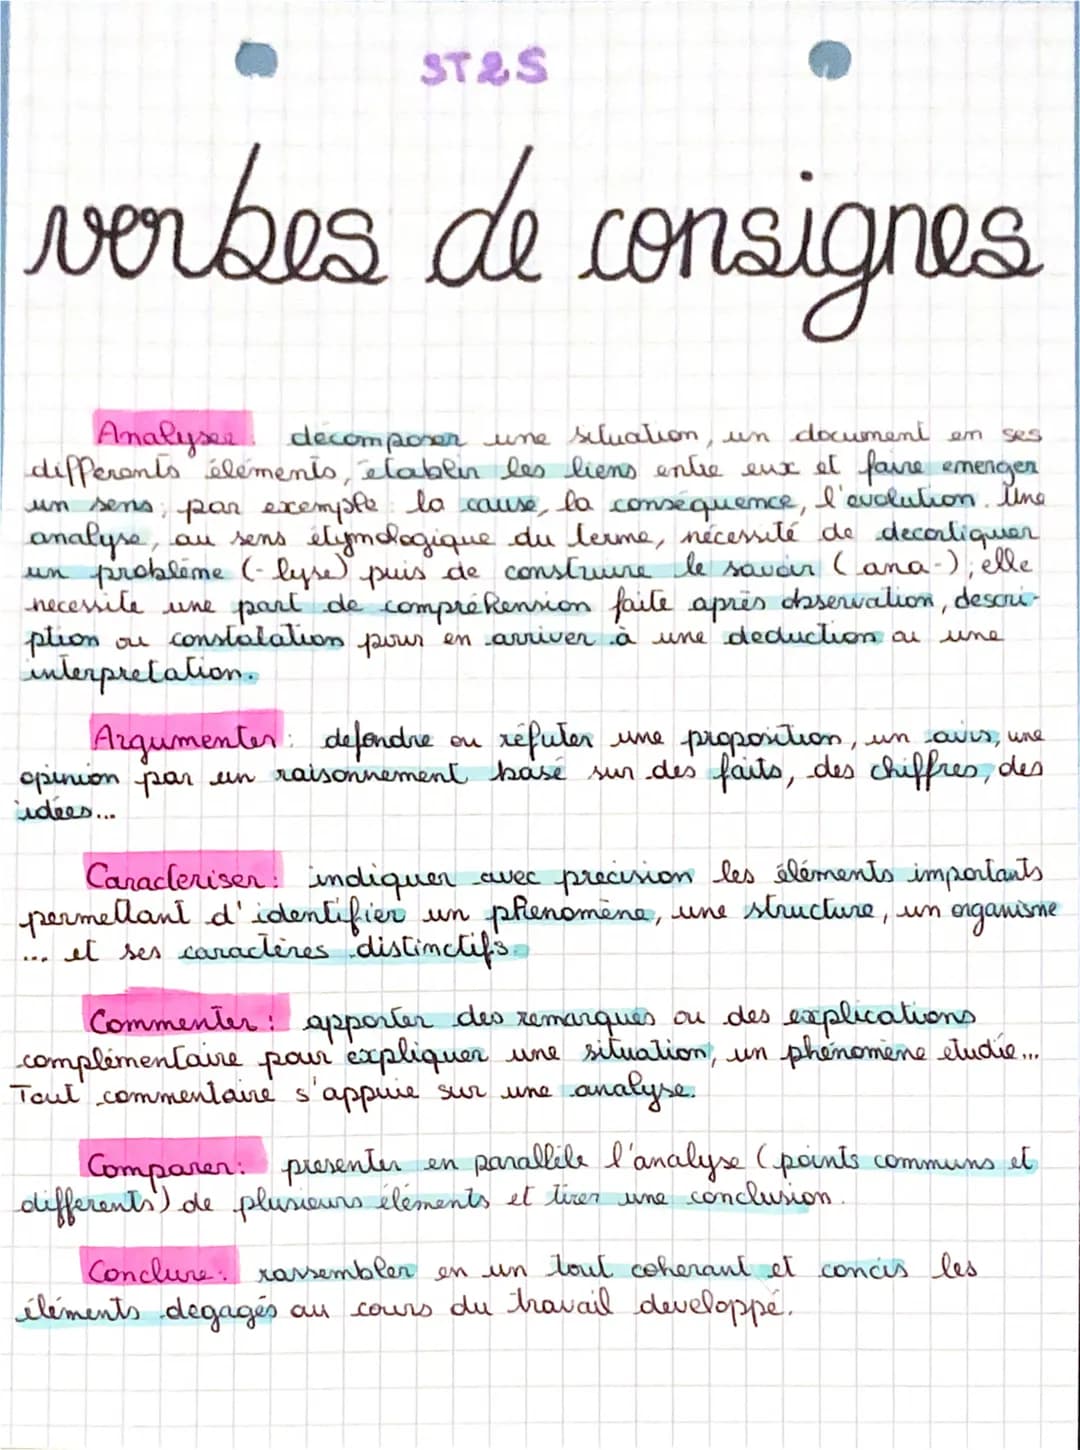 ST2S
verbes de consignes
Analyser : décomposer une situation, un document en ses
differents éléments, établir les liens entre eux et faire emerger
un sens; par exemple : la cause, la conséquence, l'évolution. Une
analyse, au sens étymologique du terme, nécessité de decortiquer
un problème (-lyse) puis de construire le savoir (ana-); elle
necessite une part de compréhension faite après observation, descri-
ption ou constatation pour en arriver à une deduction ou une
interpretation.
Argumenter : defendre ou réfuter une proposition, un avis, une
opinion par un raisonnement basé sur des faits, des chiffres, des
idées...
Caracteriser : indiquer avec précision les éléments importants
permettant d'identifier un phénomène, une structure, un organisme
... et ses caractères distinctifs.
Commenter : apporter des remarques ou des explications
complémentaire pour expliquer une situation, un phénomène etudié...
Tout commentaire s'appuie sur une analyse.
Comparer : presenter en parallèle l'analyse (points communs et
differents) de plusieurs éléments et tirer une conclusion.
Conclure : rassembler en un tout coherant et concis les
éléments dégagés au cours du travail developpé.